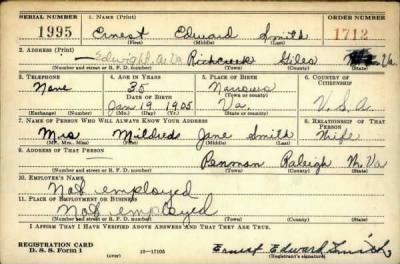 SERIAL NUMBER 1. NAME (Print) ORDER NUMBER
1995 Ernest Edward Smith 1712
(First) (Middle) (Last)
2. ADDRESS (Print)
Va. Rich Creek Giles Va.
(Number and street or R. F. D. number) (Town) (County) (State)
3. TELEPHONE 4. AGE IN YEARS 5. PLACE OF BIRTH 6. COUNTRY OF CITIZENSHIP
None 35 Narrows
DATE OF BIRTH (Town or county)
Jan 19 1905 Va. U.S.A.
(Exchange) (Number) (Mo.) (Day) (Yr.) (State or country)
7. NAME OF PERSON WHO WILL ALWAYS KNOW YOUR ADDRESS 8. RELATIONSHIP OF THAT PERSON
Mrs Mildred Jane Smith Wife
(Mr., Mrs., Miss) (First) (Middle) (Last)
9. ADDRESS OF THAT PERSON
Penman Raleigh W. Va
(Number and street or R. F. D. number) (Town) (County) (State)
10. EMPLOYER'S NAME
Not employed
11. PLACE OF EMPLOYMENT OR BUSINESS
Not employed
(Number and street or R. F. D. number) (Town) (County) (State)
I AFFIRM THAT I HAVE VERIFIED ABOVE ANSWERS AND THAT THEY ARE TRUE.
REGISTRATION CARD
D. S. S. Form 1 16—17105 Ernest Edward Smith
(Registrant's signature)